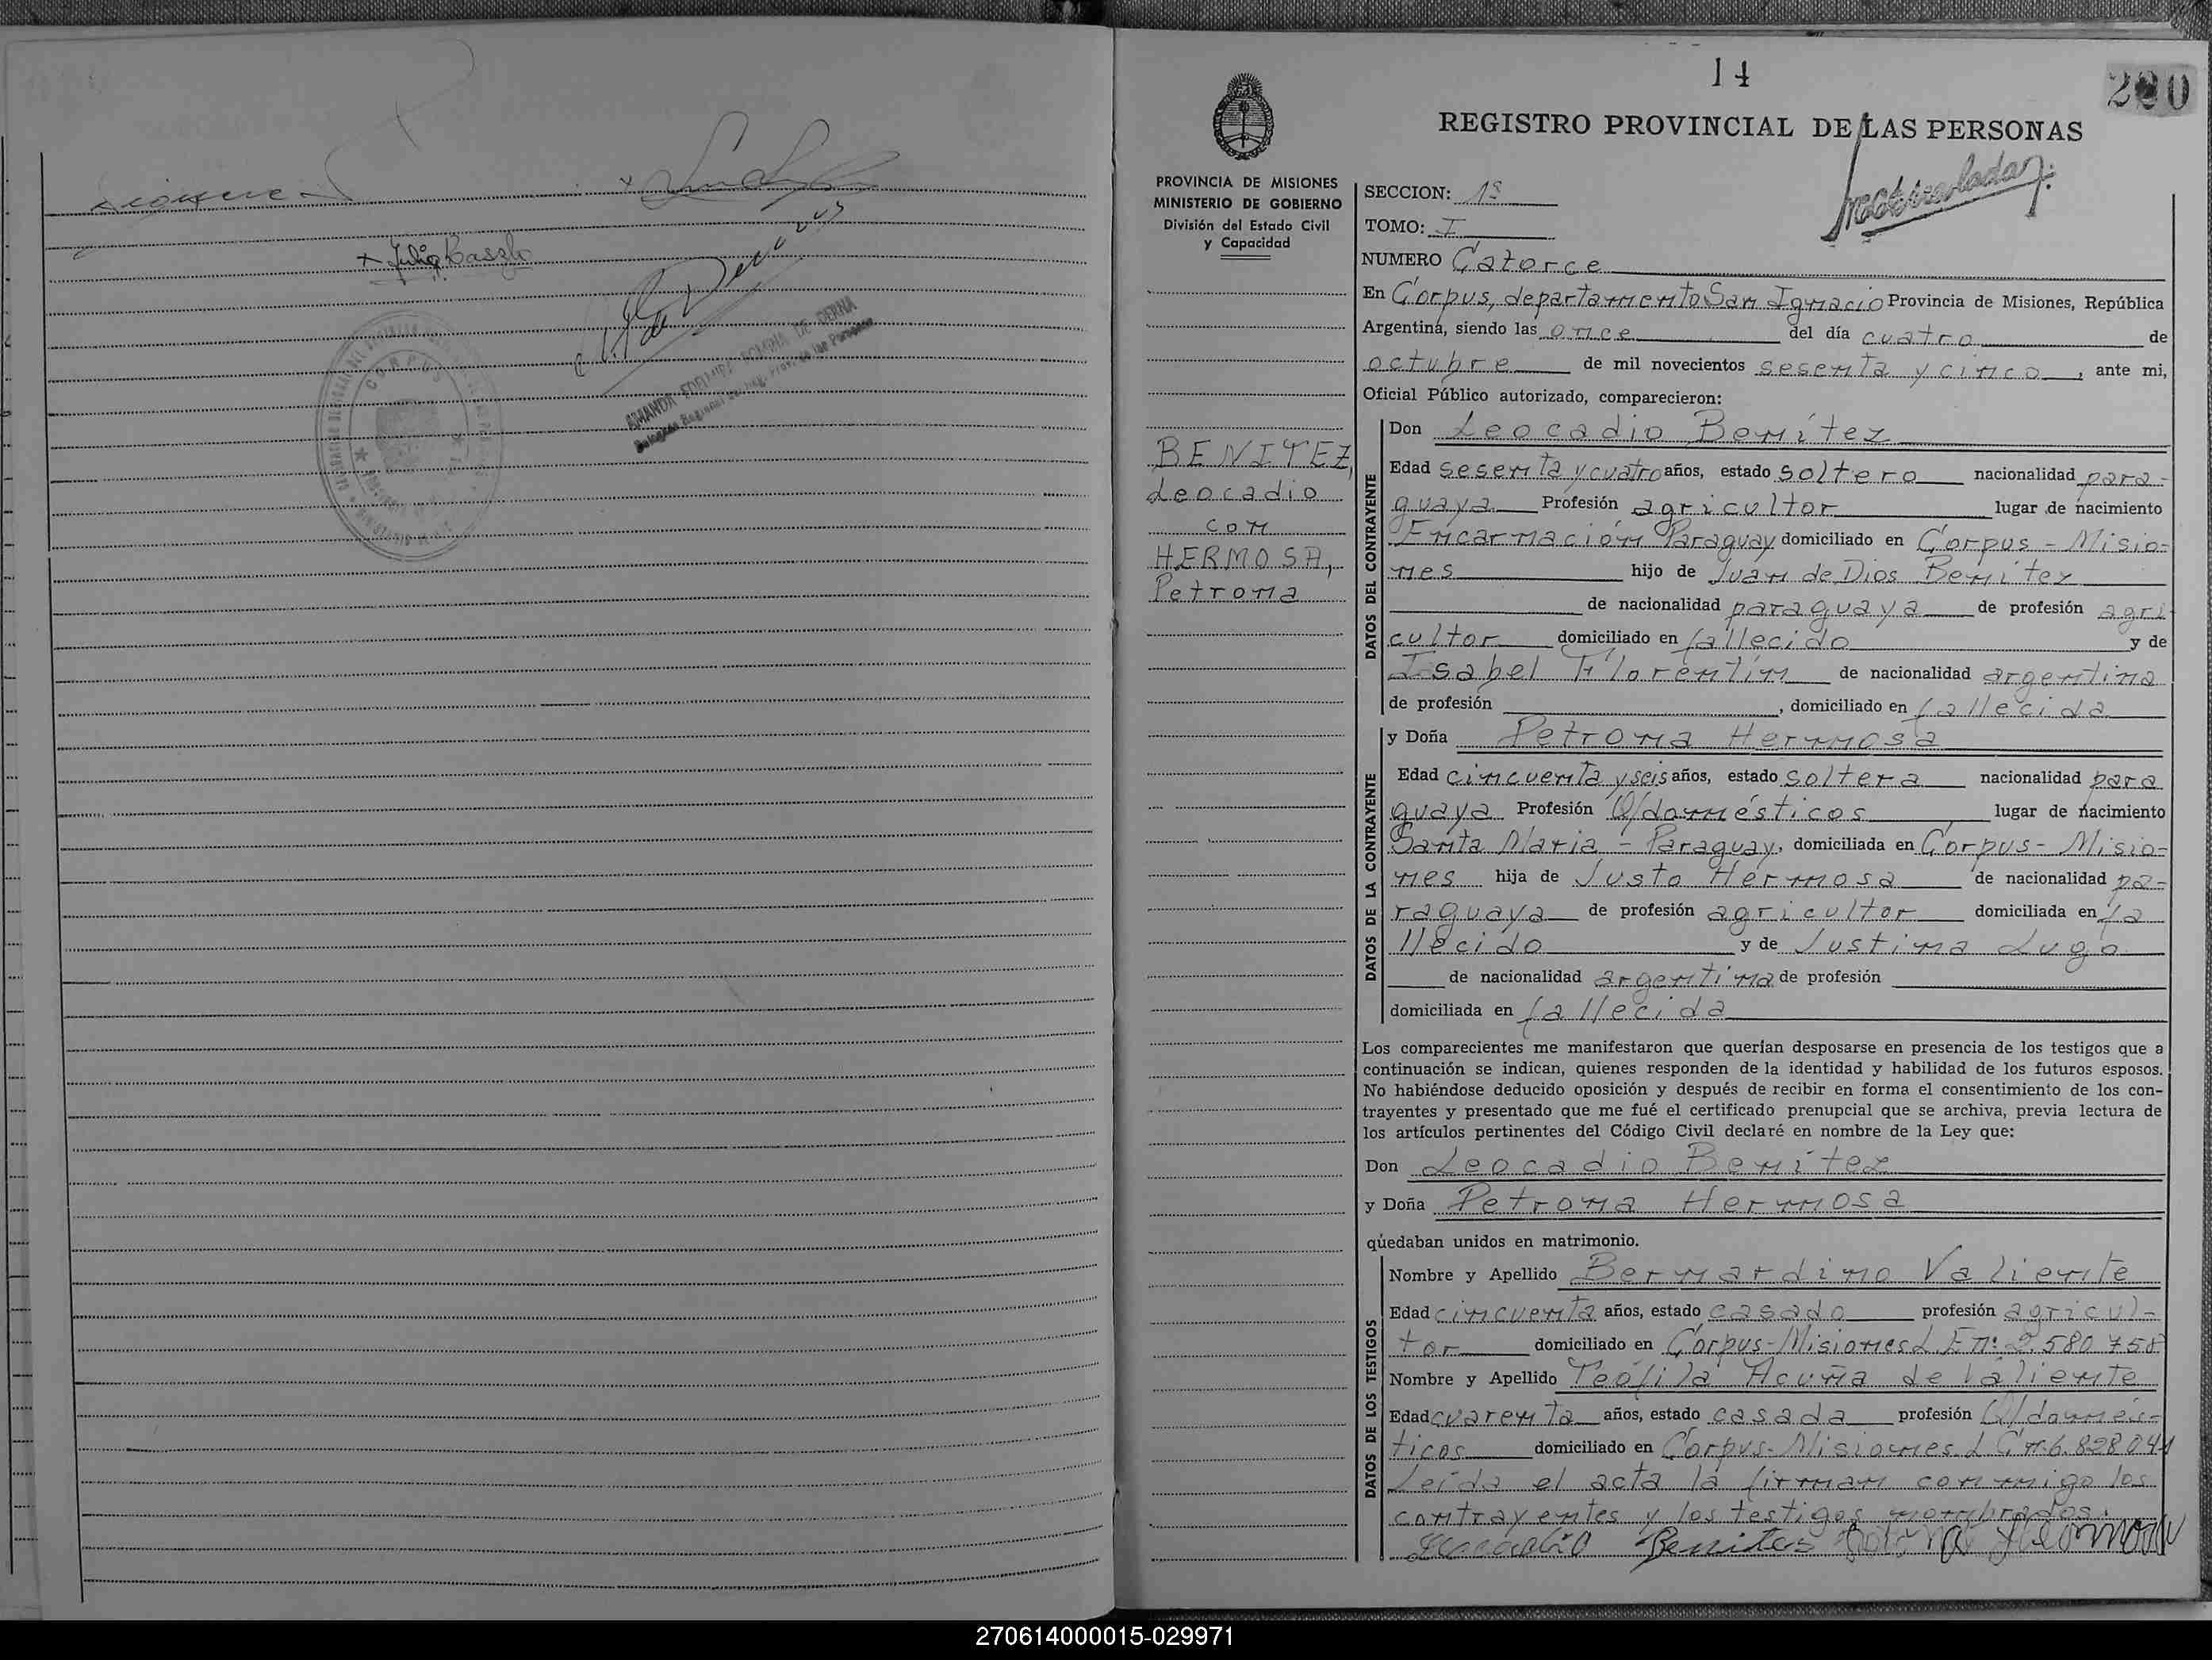 Julio Laszlo
CORPUS
AMANDA EDELMIRA ROMINA DE DERNA
14
220
REGISTRO PROVINCIAL DE LAS PERSONAS
Matriculada
PROVINCIA DE MISIONES
MINISTERIO DE GOBIERNO
División del Estado Civil
y Capacidad
SECCION: 1ª
TOMO: I
NUMERO Catorce
En Corpus, departamento San Ignacio Provincia de Misiones, República
Argentina, siendo las once del día cuatro de
octubre de mil novecientos sesenta y cinco, ante mi,
Oficial Público autorizado, comparecieron:
BENITEZ,
Leocadio
con
HERMOSA,
Petrona
DATOS DEL CONTRAYENTE
Don Leocadio Benítez
Edad sesenta y cuatro años, estado soltero nacionalidad para-
guaya Profesión agricultor lugar de nacimiento
Encarnación Paraguay domiciliado en Corpus - Misio-
nes hijo de Juan de Dios Benítez
de nacionalidad paraguaya de profesión agri
cultor domiciliado en fallecido y de
Isabel Florentín de nacionalidad argentina
de profesión , domiciliado en fallecida
DATOS DE LA CONTRAYENTE
y Doña Petrona Hermosa
Edad cincuenta y seis años, estado soltera nacionalidad para
guaya Profesión Q/domésticos lugar de nacimiento
Santa María - Paraguay, domiciliada en Corpus - Misio-
nes hija de Justo Hermosa de nacionalidad pa-
raguaya de profesión agricultor domiciliada en fa
llecido y de Justina Lugo
de nacionalidad argentina de profesión
domiciliada en fallecida
Los comparecientes me manifestaron que querían desposarse en presencia de los testigos que a
continuación se indican, quienes responden de la identidad y habilidad de los futuros esposos.
No habiéndose deducido oposición y después de recibir en forma el consentimiento de los con-
trayentes y presentado que me fué el certificado prenupcial que se archiva, previa lectura de
los artículos pertinentes del Código Civil declaré en nombre de la Ley que:
Don Leocadio Benítez
y Doña Petrona Hermosa
quedaban unidos en matrimonio.
DATOS DE LOS TESTIGOS
Nombre y Apellido Bernardino Valiente
Edad cincuenta años, estado casado profesión agricul-
tor domiciliado en Corpus-Misiones L E nº 2.580 758
Nombre y Apellido Teófila Acuña de Valiente
Edad cuarenta años, estado casada profesión Q/domés-
ticos domiciliado en Corpus-Misiones L C n 6.828 041
Leída el acta la firman conmigo los
contrayentes y los testigos nombrados.
Leocadio Benites Petrona Hermosa
270614000015-029971